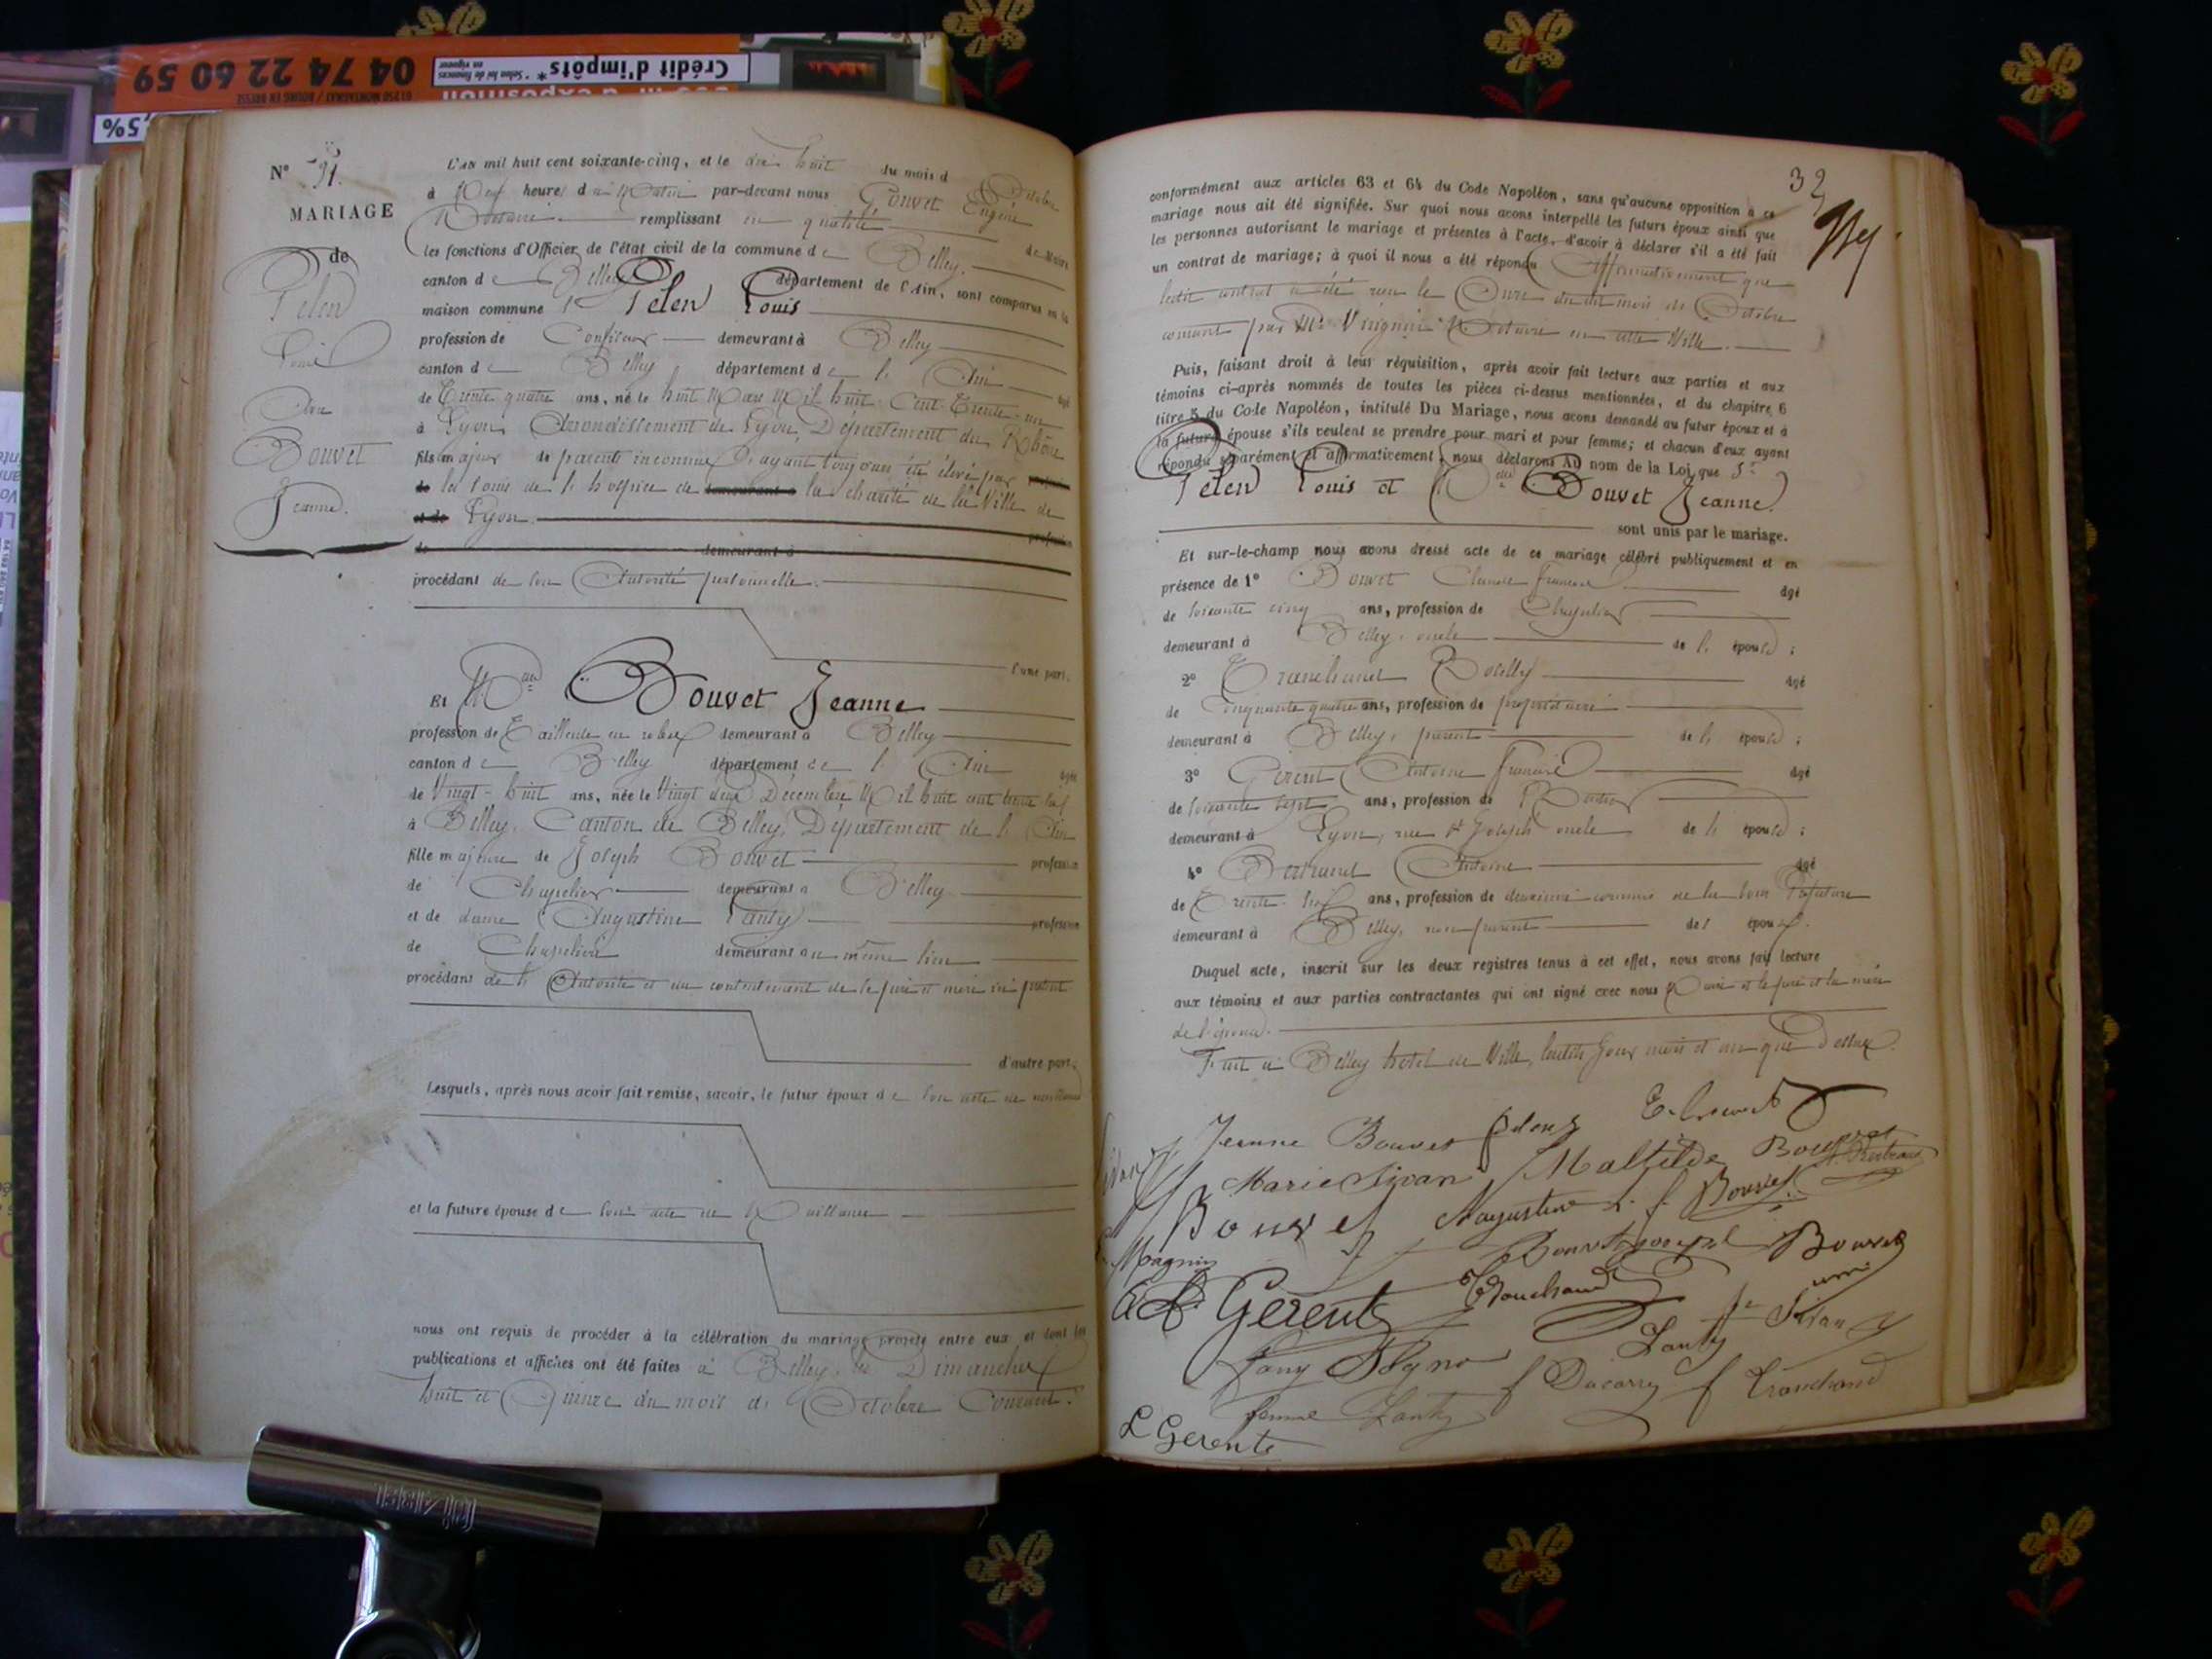 04 74 22 60 59
01250 MONTAGNAT / BOURG EN BRESSE
Crédit d'impôts*
*Selon loi de finances
en vigueur
d'exposition
5,5%
N° 31.
MARIAGE
de
Pelen
Louis
Bouvet
Jeanne.
L'an mil huit cent soixante-cinq, et le dix huit du mois d Octobre
à Neuf heures du Matin par-devant nous Gouvet Eugène
Notaire remplissant en qualité de Maire
les fonctions d'Officier de l'état civil de la commune de Belley.
canton de Belley département de l'Ain, sont comparus en la
maison commune Sr Pelen Louis
profession de Confiseur demeurant à Belley
canton de Belley département de l'Ain âgé
de Trente quatre ans, né le huit Mars Mil huit Cent Trente-un
à Lyon Arrondissement de Lyon, Département du Rhône
fils majeur de parents inconnus ayant toujours été élevé par
les soins de l'hospice de la charité de la Ville de
Lyon.
de demeurant à profession
procédant de son Autorité personnelle.
d'une part.
Et Melle Bouvet Jeanne
profession de Tailleuse en robes demeurant à Belley
canton de Belley département de l'Ain âgée
de Vingt-huit ans, née le Vingt deux Décembre Mil huit cent trente six
à Belley, Canton de Belley, Département de l'Ain
fille majeure de Joseph Bouvet profession
de Chapelier demeurant à Belley
et de dame Augustine Lanty profession
de Chapelière demeurant au même lieu
procédant de l'Autorité et du consentement de ses père et mère ici présents
d'autre part.
Lesquels, après nous avoir fait remise, savoir, le futur époux de son acte de naissance
et la future épouse de son acte de Naissance
nous ont requis de procéder à la célébration du mariage projeté entre eux et dont les
publications et affiches ont été faites à Belley, les Dimanches
huit et Quinze du mois d'Octobre Courant.
32
conformément aux articles 63 et 64 du Code Napoléon, sans qu'aucune opposition à ce
mariage nous ait été signifiée. Sur quoi nous avons interpellé les futurs époux ainsi que
les personnes autorisant le mariage et présentes à l'acte, d'avoir à déclarer s'il a été fait
un contrat de mariage; à quoi il nous a été répondu Affirmativement que
ledit contrat a été reçu le Onze du dit mois d'Octobre
courant par Me Notaire en cette Ville.
Puis, faisant droit à leur réquisition, après avoir fait lecture aux parties et aux
témoins ci-après nommés de toutes les pièces ci-dessus mentionnées, et du chapitre 6
titre 5 du Code Napoléon, intitulé Du Mariage, nous avons demandé au futur époux et à
la future épouse s'ils veulent se prendre pour mari et pour femme; et chacun d'eux ayant
répondu séparément et affirmativement, nous déclarons Au nom de la Loi que Sr
Pelen Louis et Melle Bouvet Jeanne
sont unis par le mariage.
Et sur-le-champ nous avons dressé acte de ce mariage célébré publiquement et en
présence de 1° Bouvet Claude François âgé
de soixante cinq ans, profession de Chapelier
demeurant à Belley, oncle de l'épouse;
2° Tranchand âgé
de Cinquante quatre ans, profession de propriétaire
demeurant à Belley, parent de l'épouse;
3° Gerent Antoine François âgé
de soixante sept ans, profession de Rentier
demeurant à Lyon, rue St Joseph oncle de l'épouse;
4° Bertrand Antoine âgé
de Trente-six ans, profession de deuxième commis de la Sous Préfecture
demeurant à Belley, non parent de l époux.
Duquel acte, inscrit sur les deux registres tenus à cet effet, nous avons fait lecture
aux témoins et aux parties contractantes qui ont signé avec nous Maire et le père et la mère
de l'épouse.
Fait à Belley hôtel de Ville, lesdits Jour mois et an que Dessus.
Jeanne Bouvet Pelen
Marie Sivan Mathilde Bouvet Bertrand
Bouvet Augustine Bouvet
Magnin Bouvet Joseph Bouvet
Gerente Tranchand
Sivan
Lanty
Fany
f Ducarry f Tranchand
femme Lanty
L Gerente